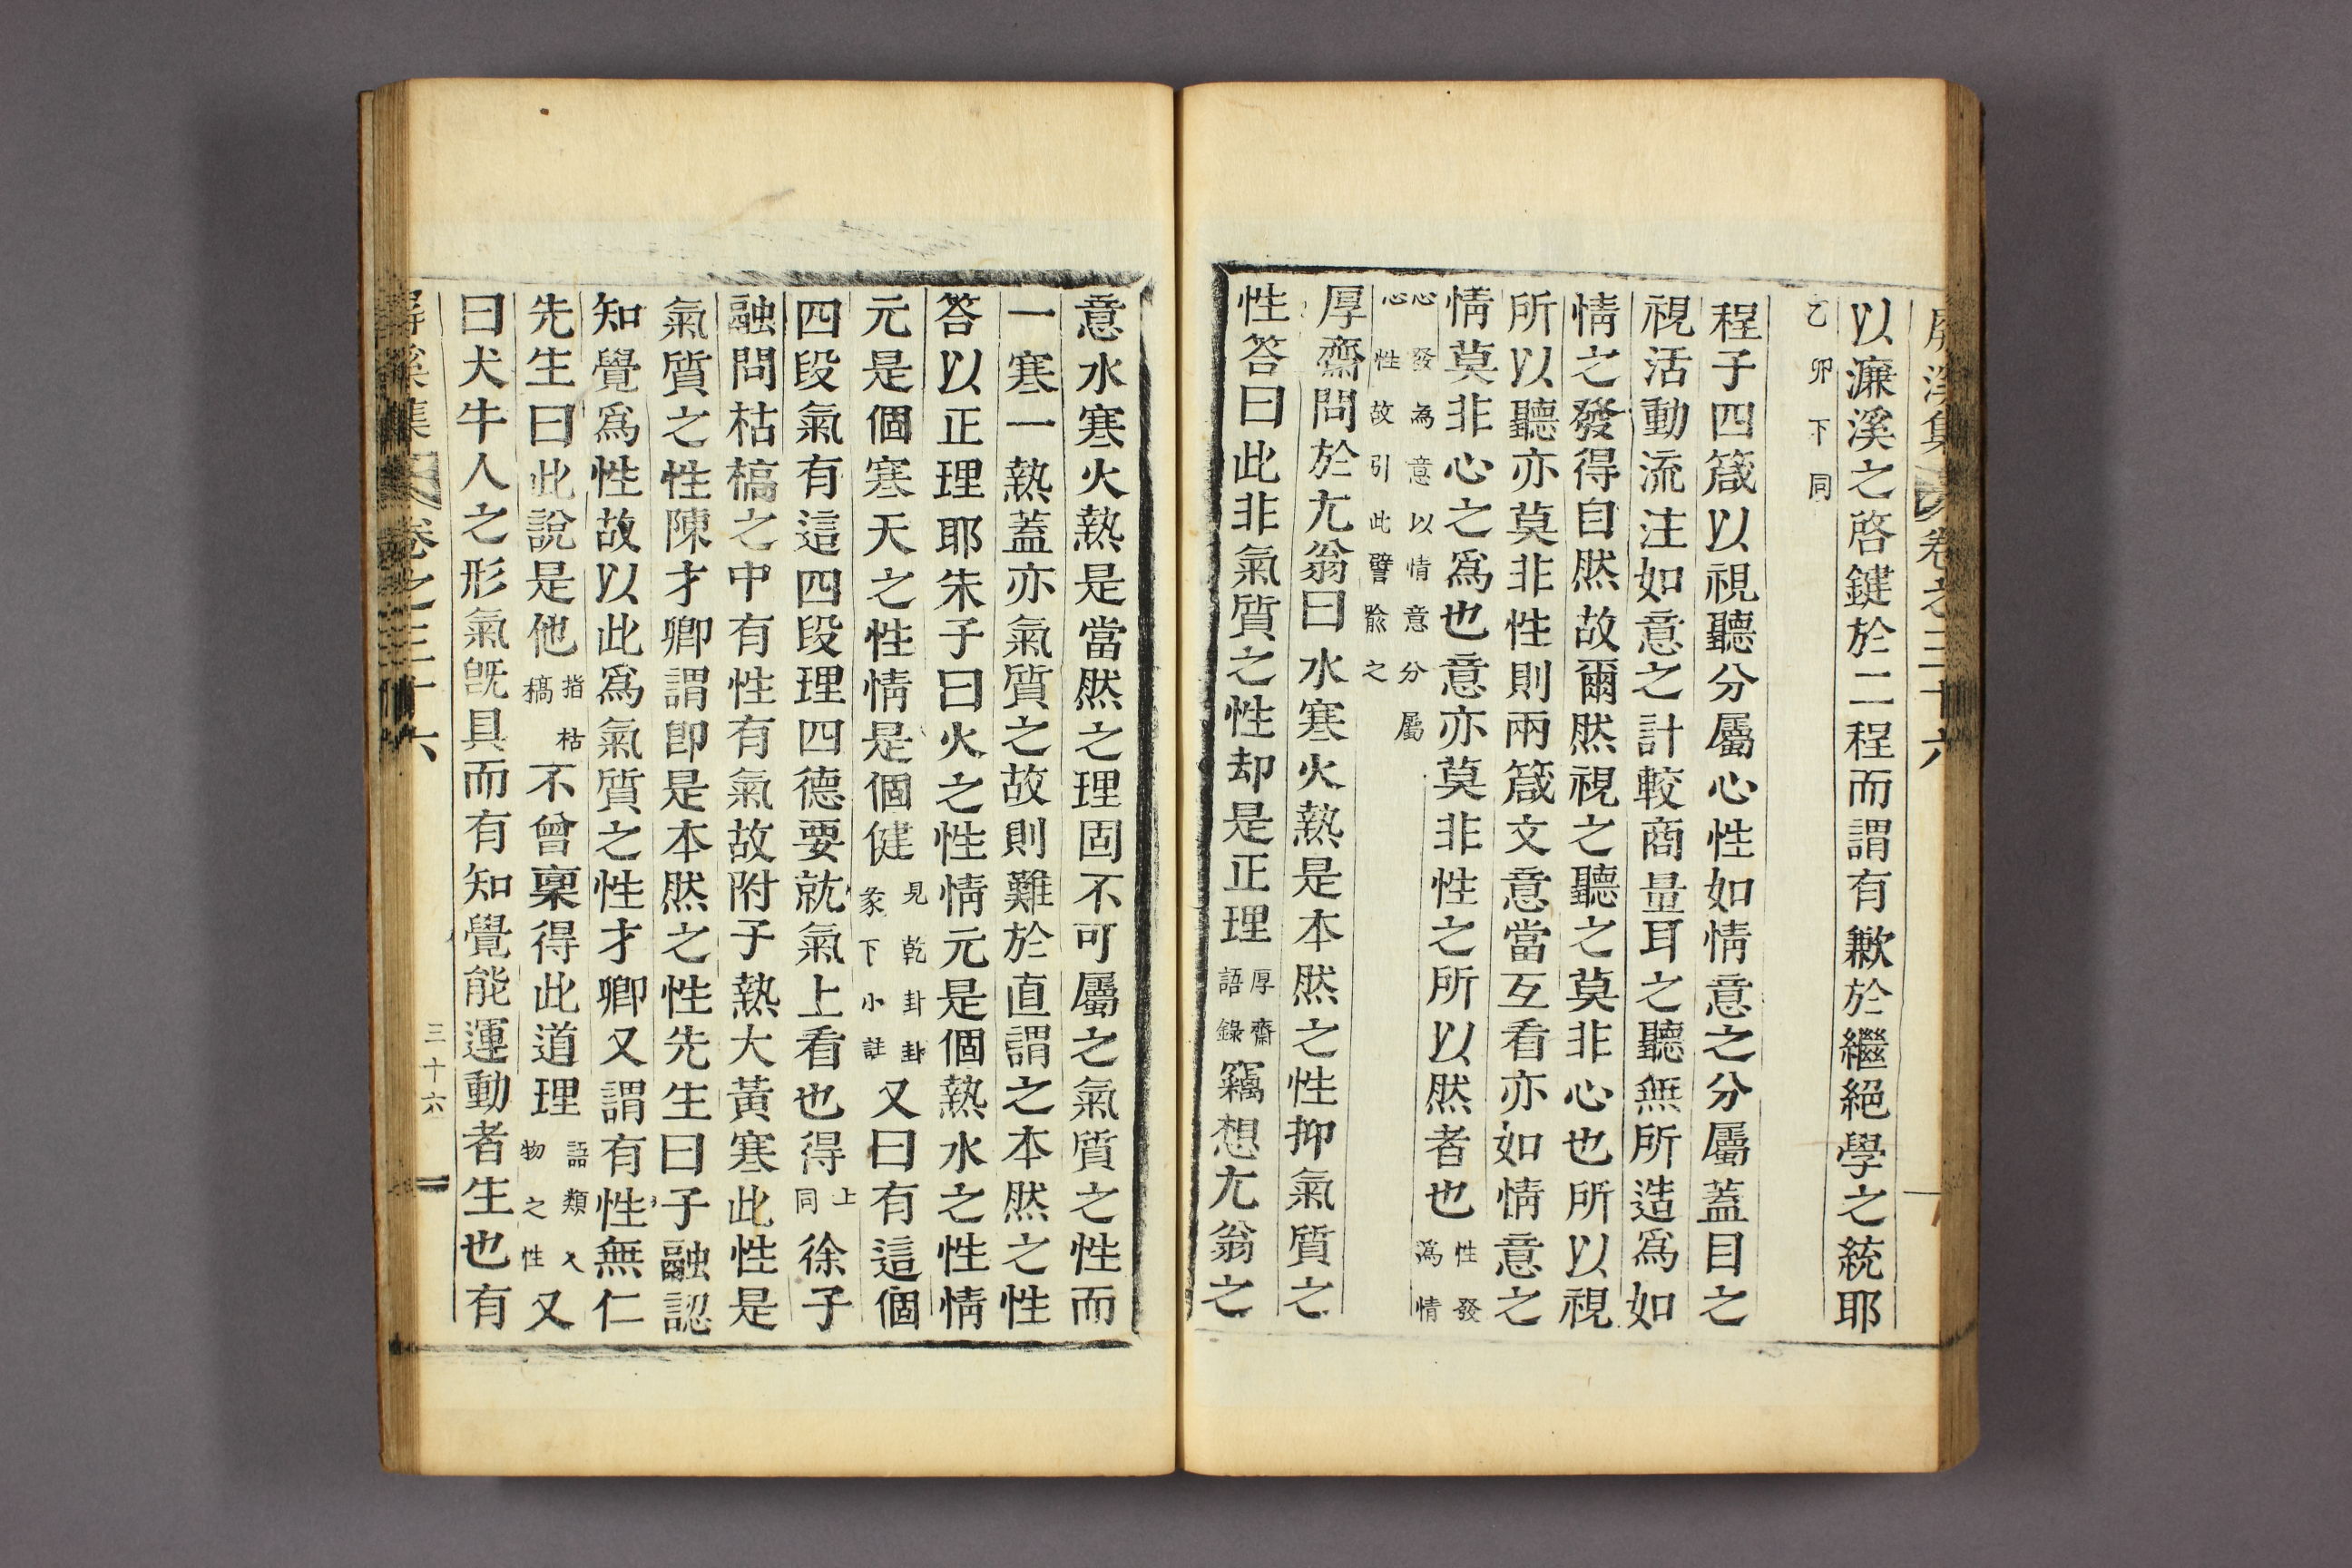 屛溪集 卷之三十六
以濂溪之啓鍵於二程而謂有歉於繼絕學之統耶
乙卯下同
程子四箴以視聽分屬心性如情意之分屬蓋目之
視活動流注如意之計較商量耳之聽無所造爲如
情之發得自然故爾然視之聽之莫非心也所以視
所以聽亦莫非性則兩箴文意當互看亦如情意之
情莫非心之爲也意亦莫非性之所以然者也性發爲情
心發為意以情意分屬心性故引此譬喩之
厚齋問於尤翁曰水寒火熱是本然之性抑氣質之
性答曰此非氣質之性却是正理厚齋語錄竊想尤翁之
意水寒火熱是當然之理固不可屬之氣質之性而
一寒一熱蓋亦氣質之故則難於直謂之本然之性
答以正理耶朱子曰火之性情元是個熱水之性情
元是個寒天之性情是個健見乾卦卦彖下小註又曰有這個
四段氣有這四段理四德要就氣上看也得上同徐子
融問枯槁之中有性有氣故附子熱大黃寒此性是
氣質之性陳才卿謂卽是本然之性先生曰子融認
知覺爲性故以此爲氣質之性才卿又謂有性無仁
先生曰此說是他指枯槁不曾稟得此道理語類人物之性又
曰犬牛人之形氣旣具而有知覺能運動者生也有
屛溪集 卷之三十六
三十六